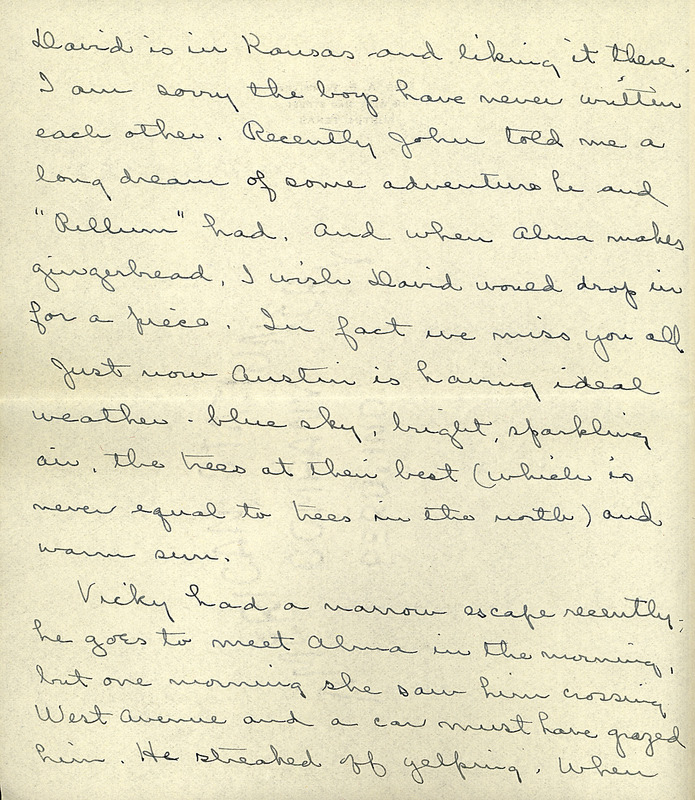 David is in Kansas and liking it there.
I am sorry the boys have never written
each other. Recently John told me a
long dream of some adventure he and
"Pellum" had. And when Alma makes
gingerbread, I wish David would drop in
for a piece. In fact we miss you all
Just now Austin is having ideal
weather - blue sky, bright, sparkling
air, the trees at their best (which is
never equal to trees in the north) and
warm sun.
Vicky had a narrow escape recently;
he goes to meet Alma in the morning,
but one morning she saw him crossing
West Avenue and a car must have grazed
him. He streaked off yelping. When